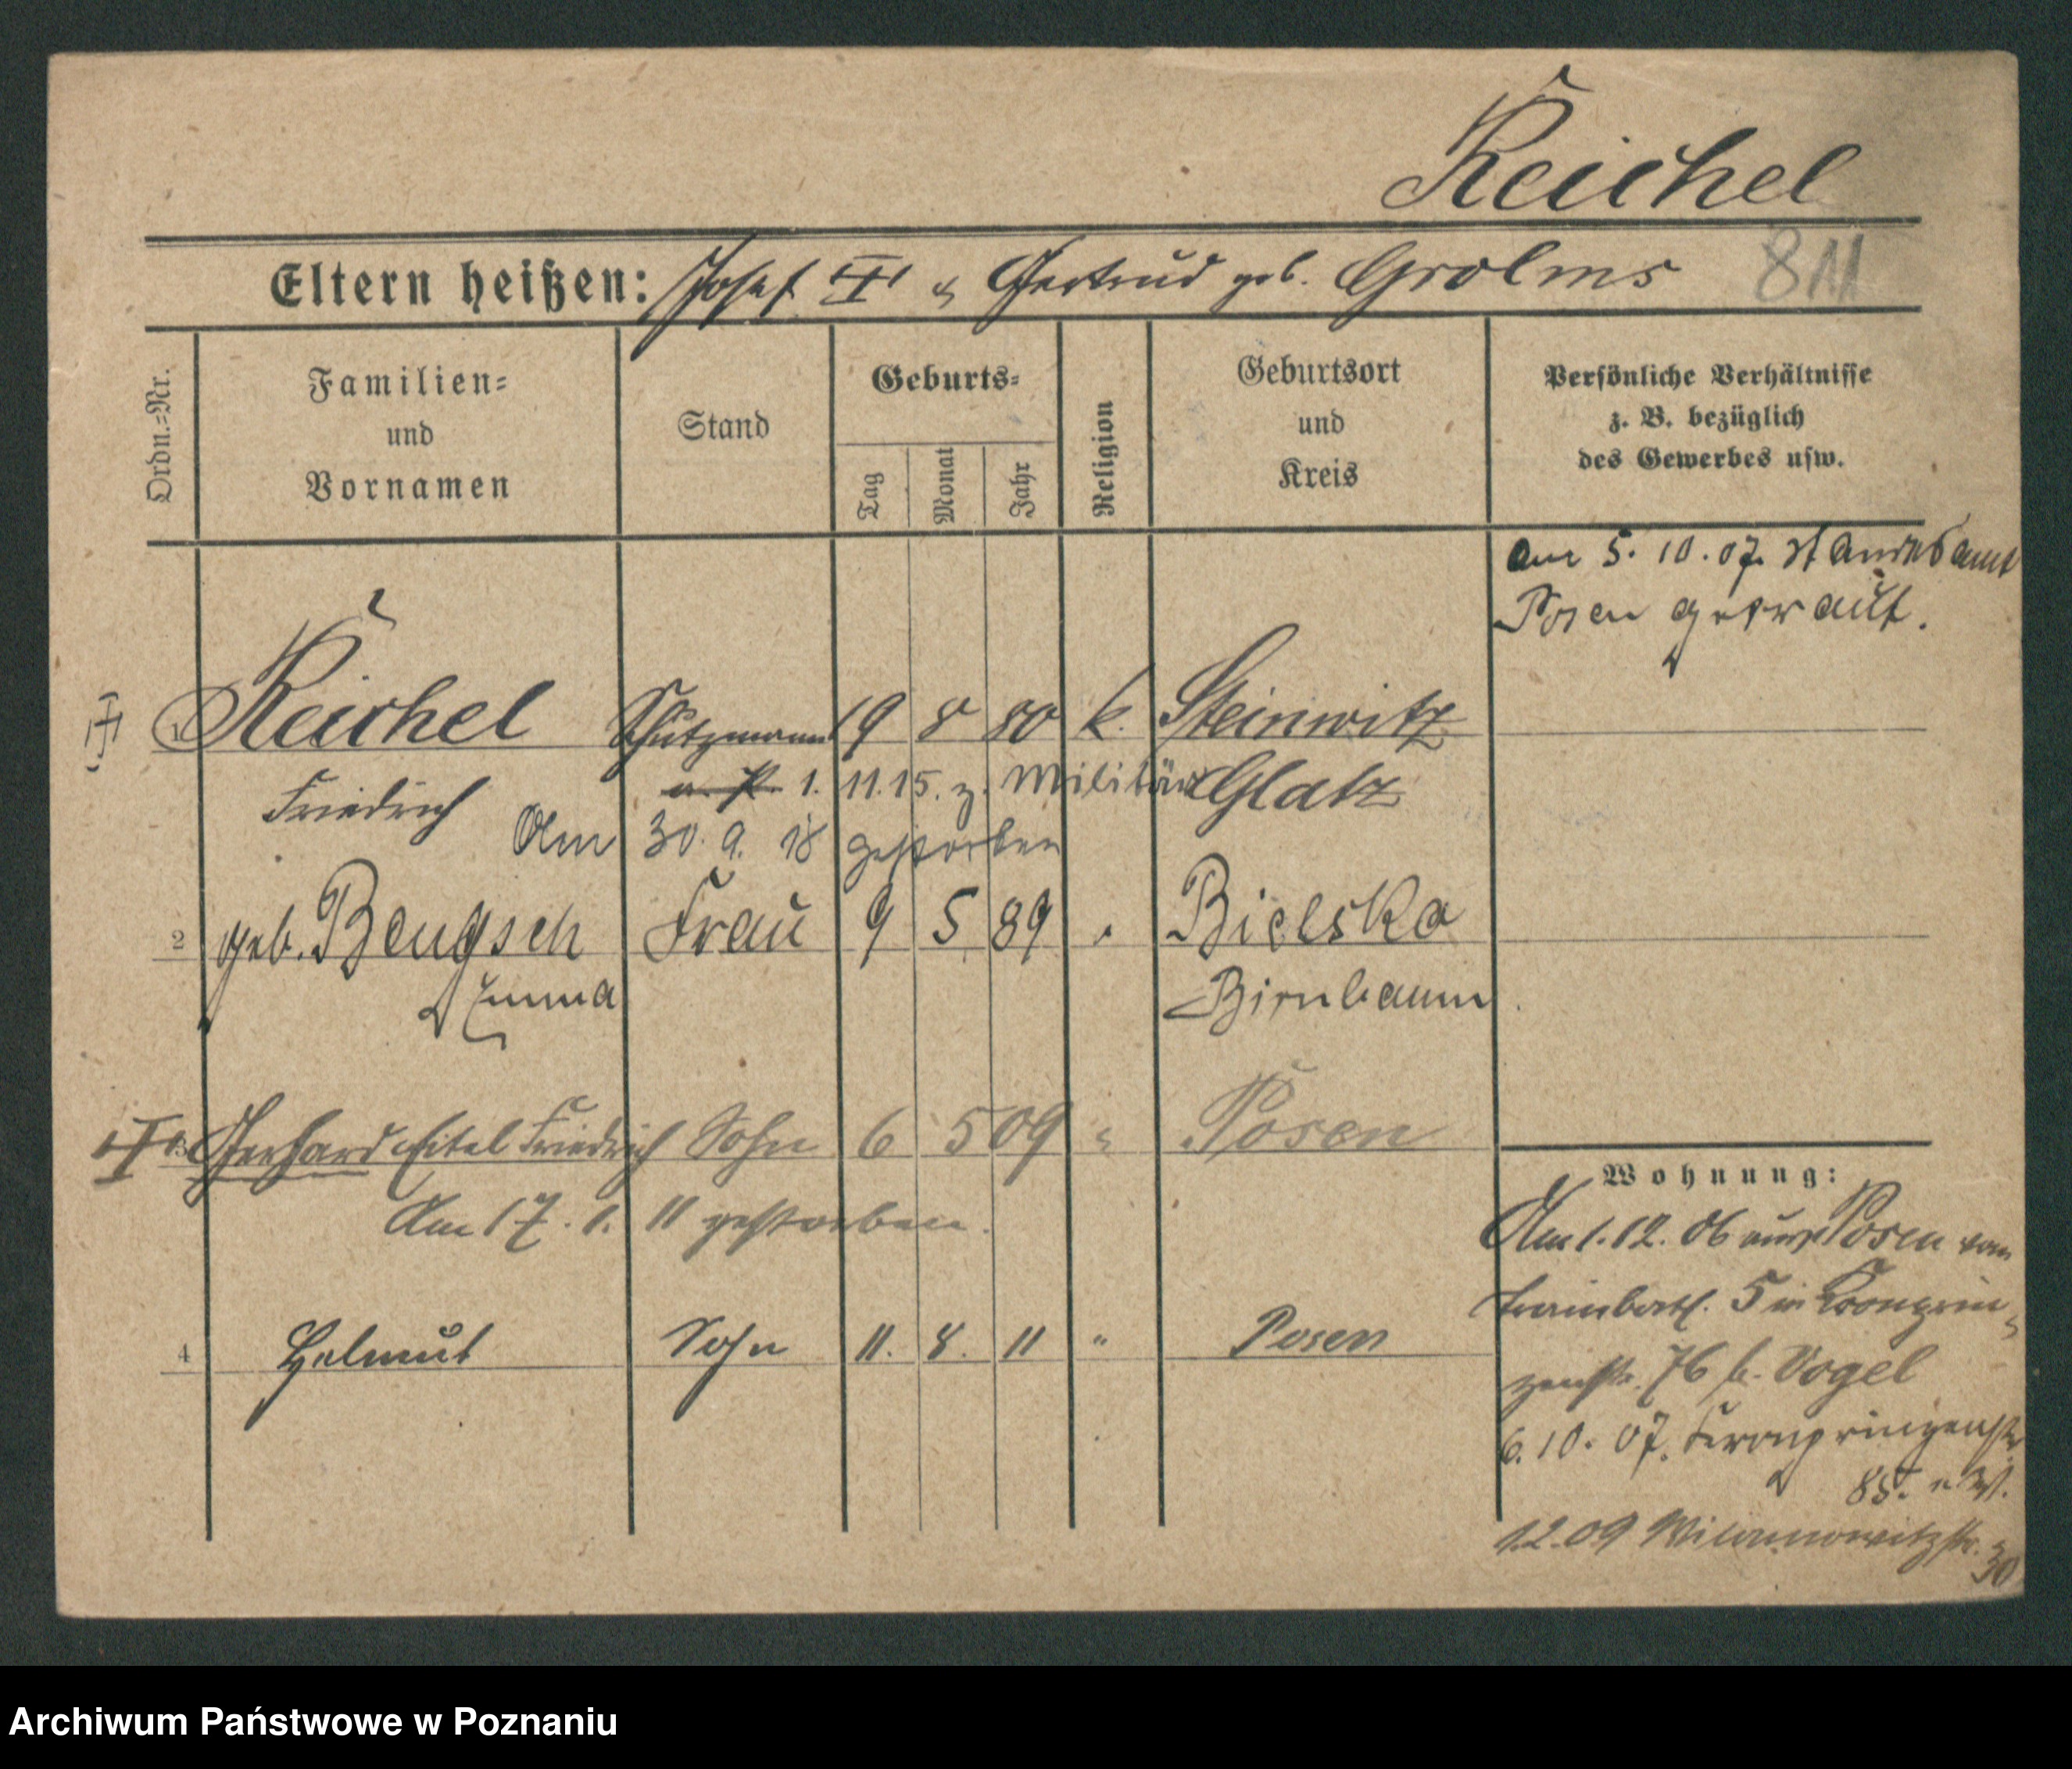 Reichel
Eltern heißen: Josef † & Gertrud geb. Grolms 811
Ordn.-Nr.
Familien-
und
Vornamen
Stand
Geburts-
Tag
Monat
Jahr
Religion
Geburtsort
und
Kreis
Persönliche Verhältnisse
z. B. bezüglich
des Gewerbes usw.
Am 5. 10. 07. Standesamt
Posen getraut.
† 1 Reichel Schutzmann 19 8 80 k. Steinwitz
Friedrich 1. 11. 15. z. Militär Glatz
Am 30. 9. 18 gestorben
2 geb. Bengsch Frau 9 5 89 " Bielsko
Emma Birnbaum
† 3 Gerhard Eitel Friedrich Sohn 6 5 09 " Posen
Am 17. 1. 11 gestorben.
4 Helmut Sohn 11. 8. 11 " Posen
Wohnung:
Am 1. 12. 06 aus Posen vom
Trainbatl. 5 in Kronprin-
zenstr. 76 b. Vogel
6. 10. 07. Kronprinzenstr
85.
1.2.09 Wilamowitzstr. 30
Archiwum Państwowe w Poznaniu